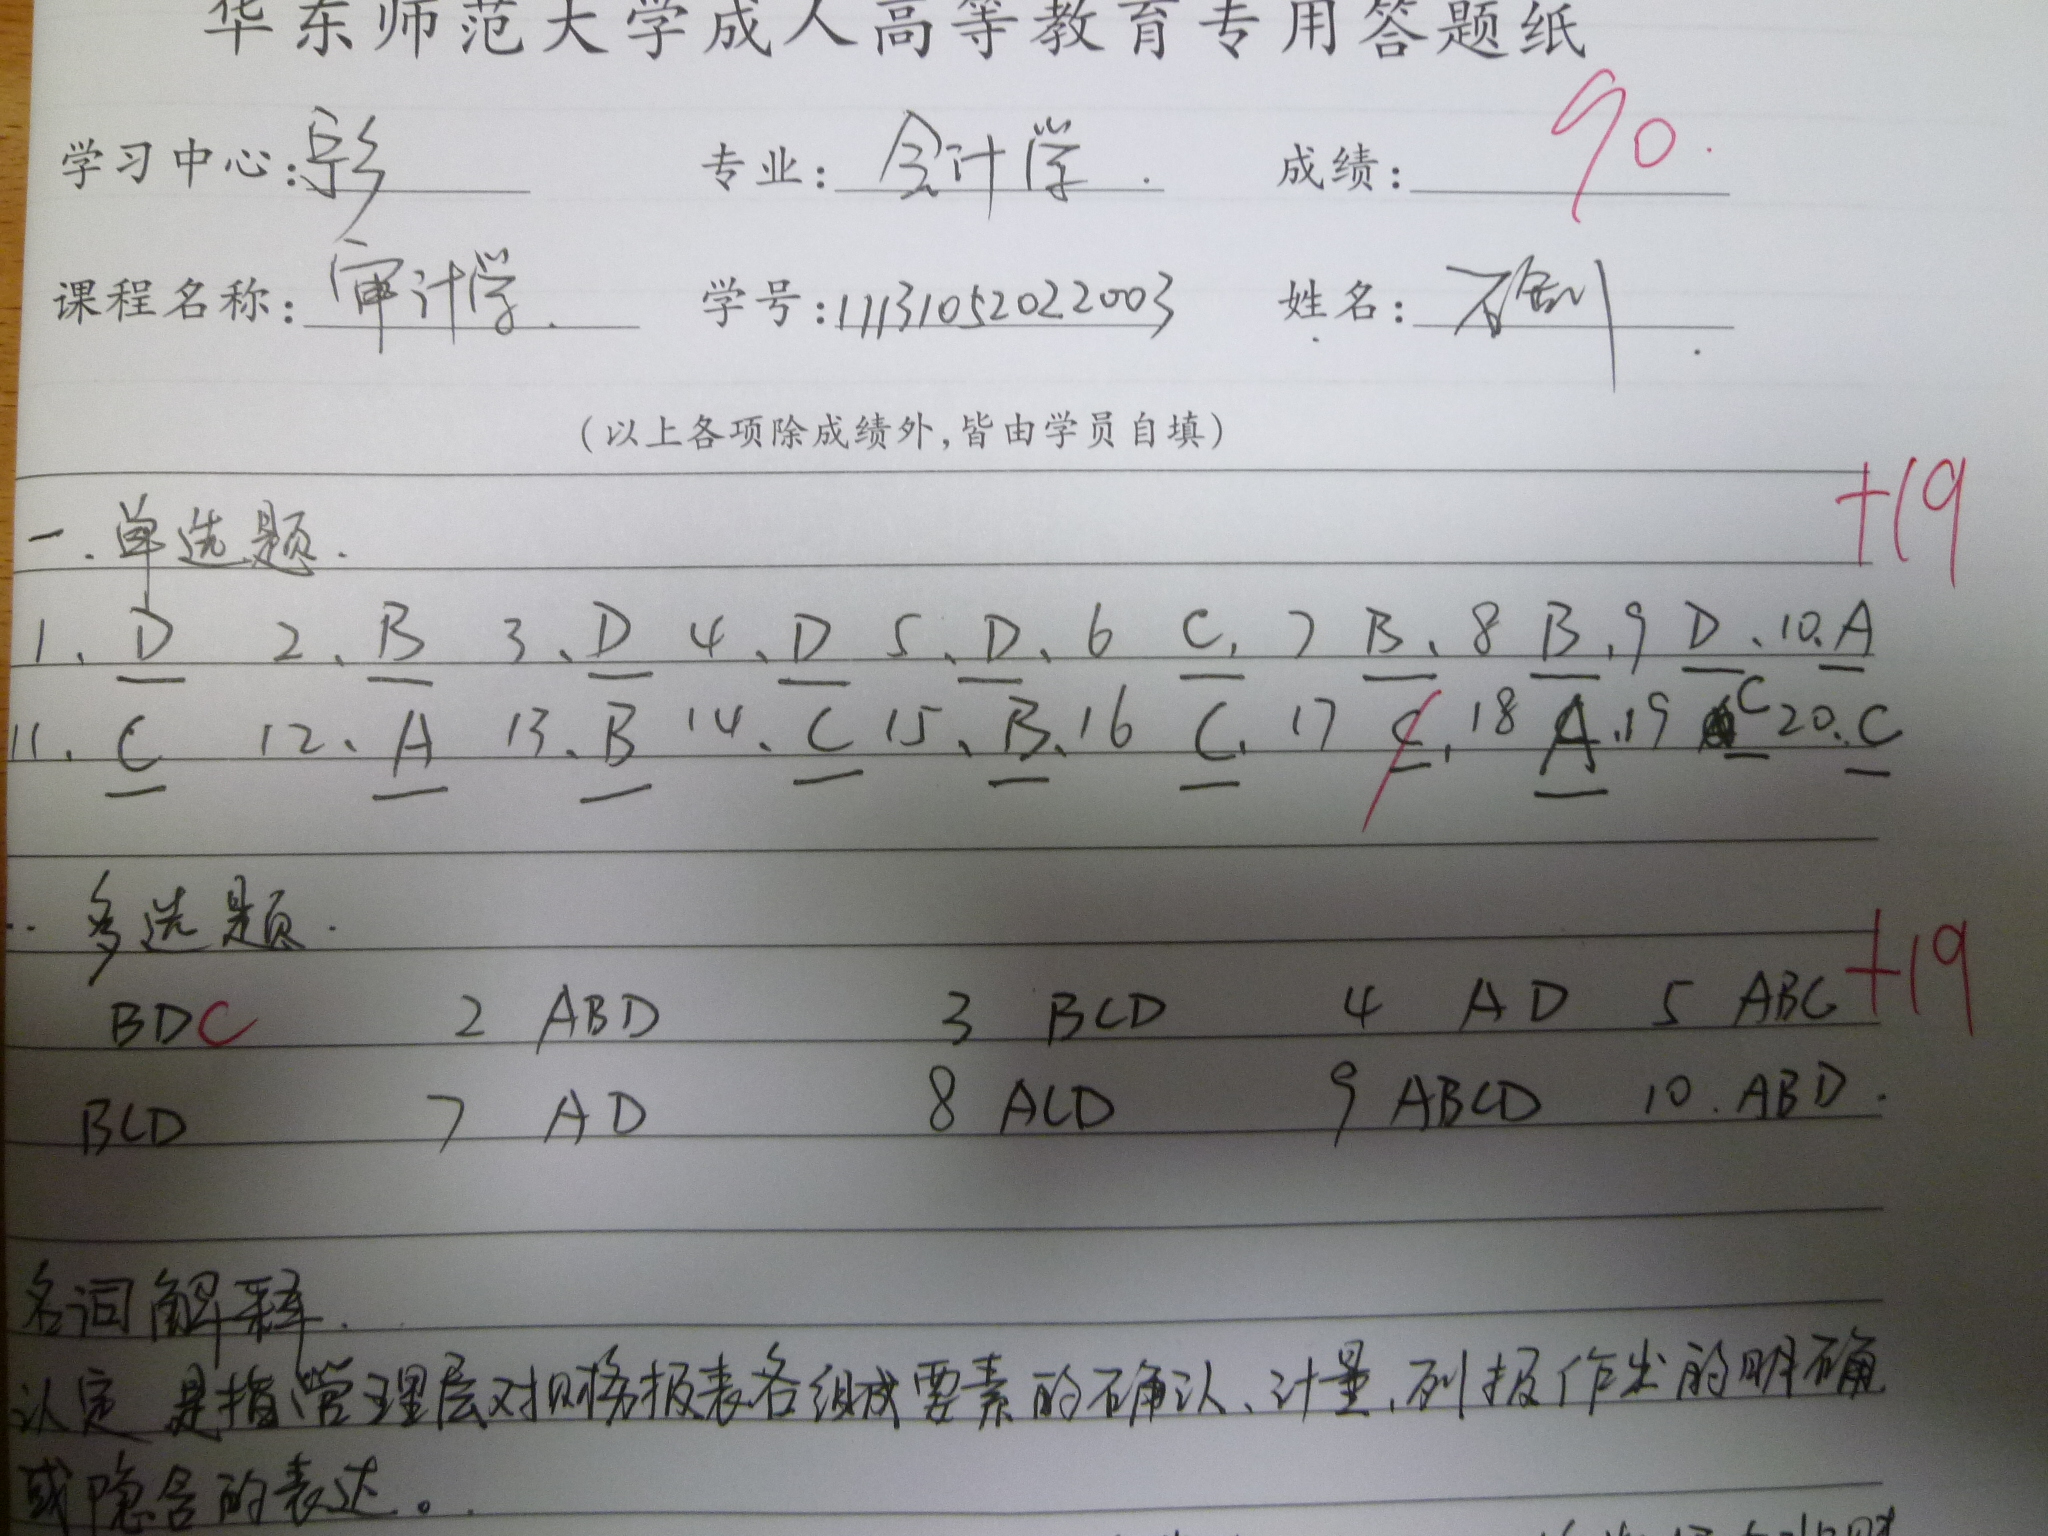 华东师范大学成人高等教育专用答题纸
学习中心: 专业: 会计学 成绩: 90.
课程名称: 审计学. 学号: 11131052022003 姓名: 石剑
(以上各项除成绩外,皆由学员自填)
一. 单选题. +19
1、D 2、B 3、D 4、D 5、D、6 C, 7 B、8 B,9 D、10、A
11、C 12、A 13、B 14、C 15、B、16 C, 17 C, 18 A,19 C 20、C
多选题. +19
BDC 2 ABD 3 BCD 4 AD 5 ABC
BCD 7 AD 8 ACD 9 ABCD 10. ABD.
名词解释.
认定 是指管理层对财务报表各组成要素的确认、计量、列报作出的明确
或隐含的表达。